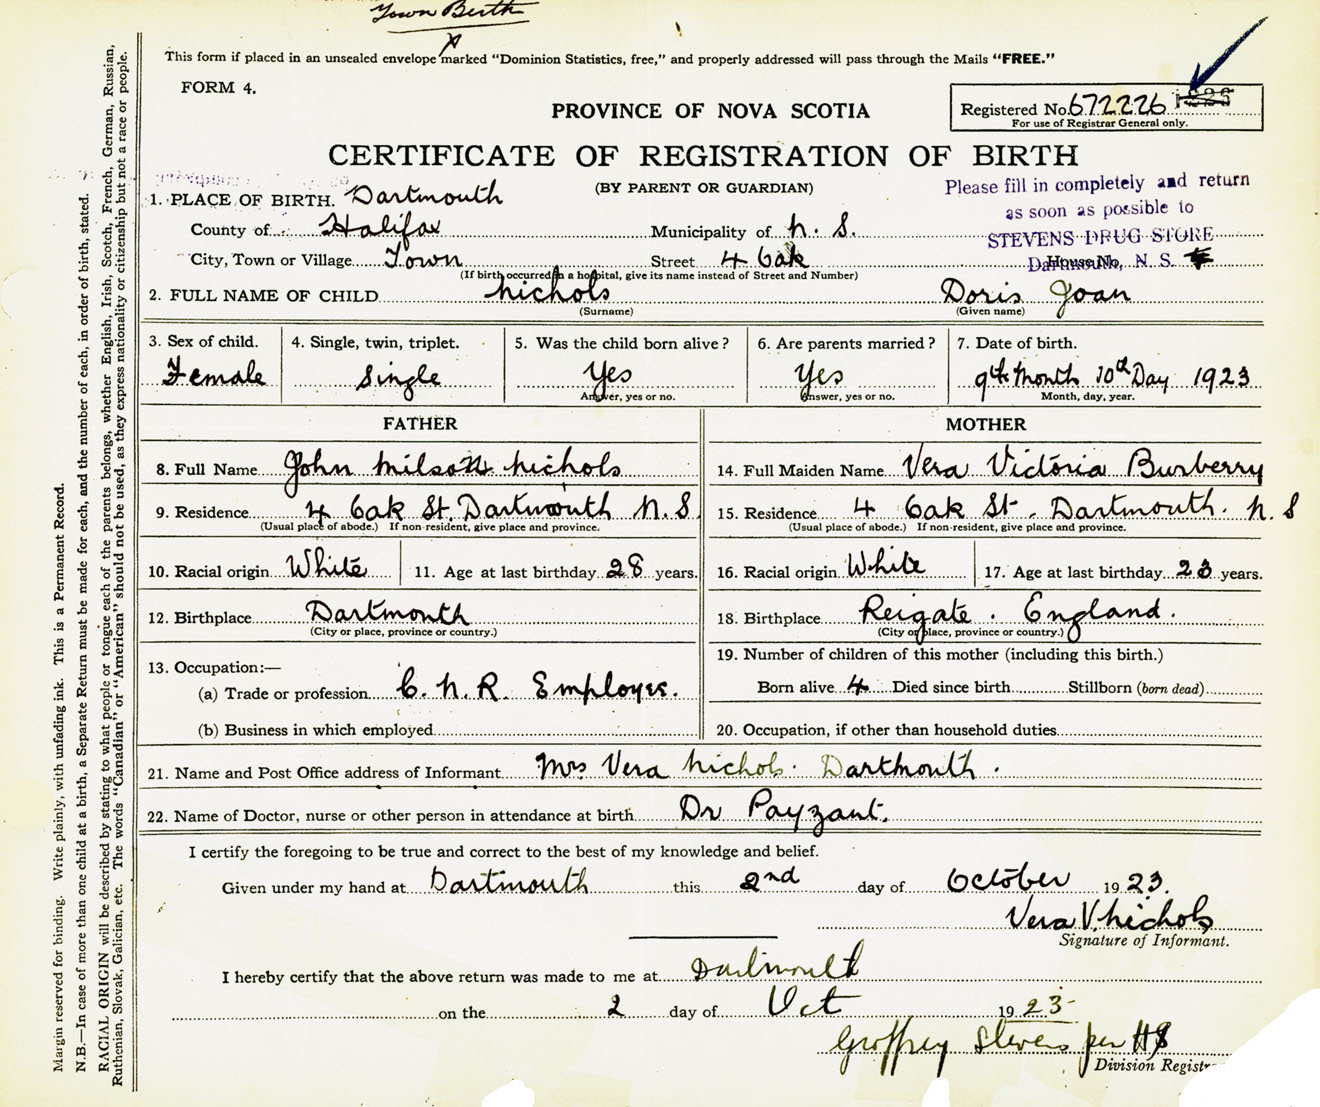 Town Birth
This form if placed in an unsealed envelope marked "Dominion Statistics, free," and properly addressed will pass through the Mails "FREE."
FORM 4.
PROVINCE OF NOVA SCOTIA
Registered No. 672226
For use of Registrar General only.
CERTIFICATE OF REGISTRATION OF BIRTH
(BY PARENT OR GUARDIAN)
Please fill in completely and return
as soon as possible to
STEVENS DRUG STORE
Dartmouth, N. S.
1. PLACE OF BIRTH. Dartmouth
County of Halifax Municipality of N. S.
City, Town or Village Town Street 4 Oak House No.
(If birth occurred in a hospital, give its name instead of Street and Number)
2. FULL NAME OF CHILD Nichols Doris Joan
(Surname) (Given name)
3. Sex of child. 4. Single, twin, triplet. 5. Was the child born alive? 6. Are parents married? 7. Date of birth.
Female Single Yes Yes 9th Month 10th Day 1923
Answer, yes or no. Answer, yes or no. Month, day, year.
FATHER MOTHER
8. Full Name John Milson Nichols 14. Full Maiden Name Vera Victoria Burberry
9. Residence 4 Oak St. Dartmouth N.S 15. Residence 4 Oak St. Dartmouth. N.S
(Usual place of abode.) If non-resident, give place and province. (Usual place of abode.) If non-resident, give place and province.
10. Racial origin White 11. Age at last birthday 28 years. 16. Racial origin White 17. Age at last birthday 23 years.
12. Birthplace Dartmouth 18. Birthplace Reigate. England.
(City or place, province or country.) (City or place, province or country.)
13. Occupation:— 19. Number of children of this mother (including this birth.)
(a) Trade or profession C. N. R. Employee. Born alive 4 Died since birth Stillborn (born dead)
(b) Business in which employed 20. Occupation, if other than household duties
21. Name and Post Office address of Informant Mrs Vera Nichols. Dartmouth.
22. Name of Doctor, nurse or other person in attendance at birth Dr Payzant.
I certify the foregoing to be true and correct to the best of my knowledge and belief.
Given under my hand at Dartmouth this 2nd day of October 1923.
Vera V. Nichols
Signature of Informant.
I hereby certify that the above return was made to me at Dartmouth
on the 2 day of Oct 1923
Geoffrey Stevens per HS
Division Registr
Margin reserved for binding. Write plainly, with unfading ink. This is a Permanent Record.
N.B.—In case of more than one child at a birth, a Separate Return must be made for each, and the number of each, in order of birth, stated.
RACIAL ORIGIN will be described by stating to what people or tongue each of the parents belongs, whether English, Irish, Scotch, French, German, Russian,
Ruthenian, Slovak, Galician, etc. The words "Canadian" or "American" should not be used, as they express nationality or citizenship but not a race or people.